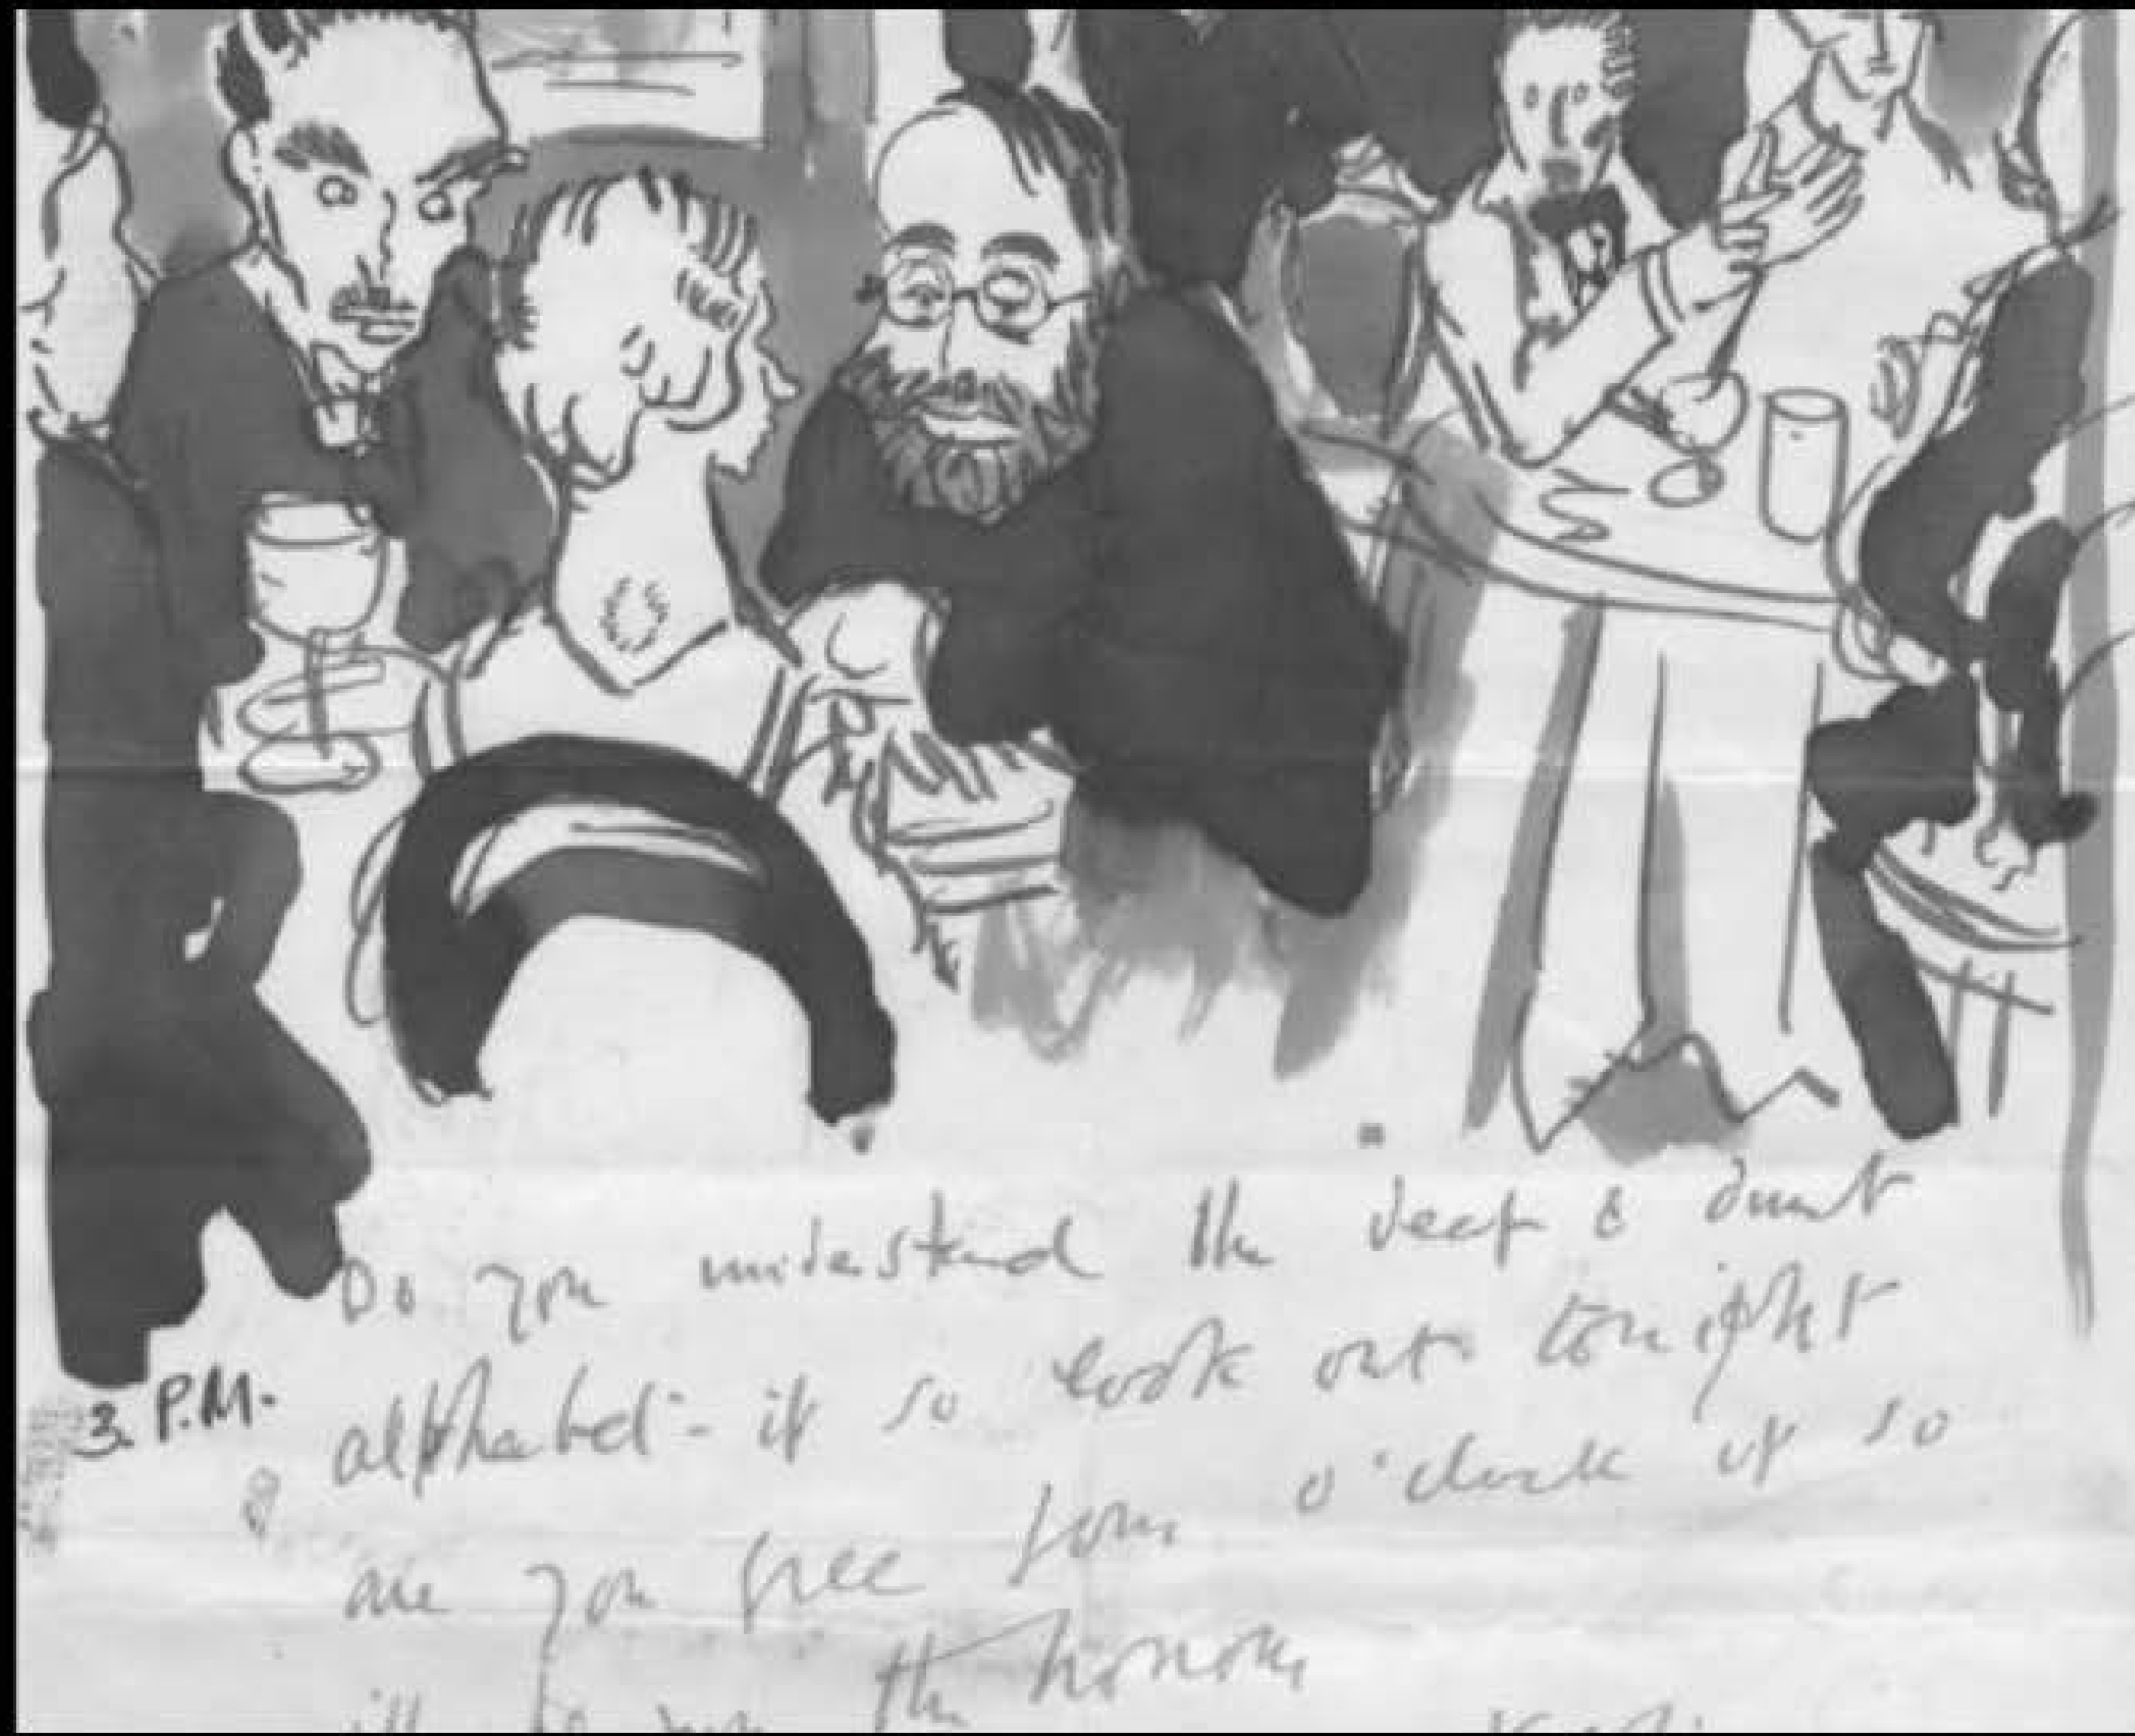 Do you understand the deaf & dumb
3. P.M.
alphabet - if so look out tonight
are you free four o'clock if so
the honour